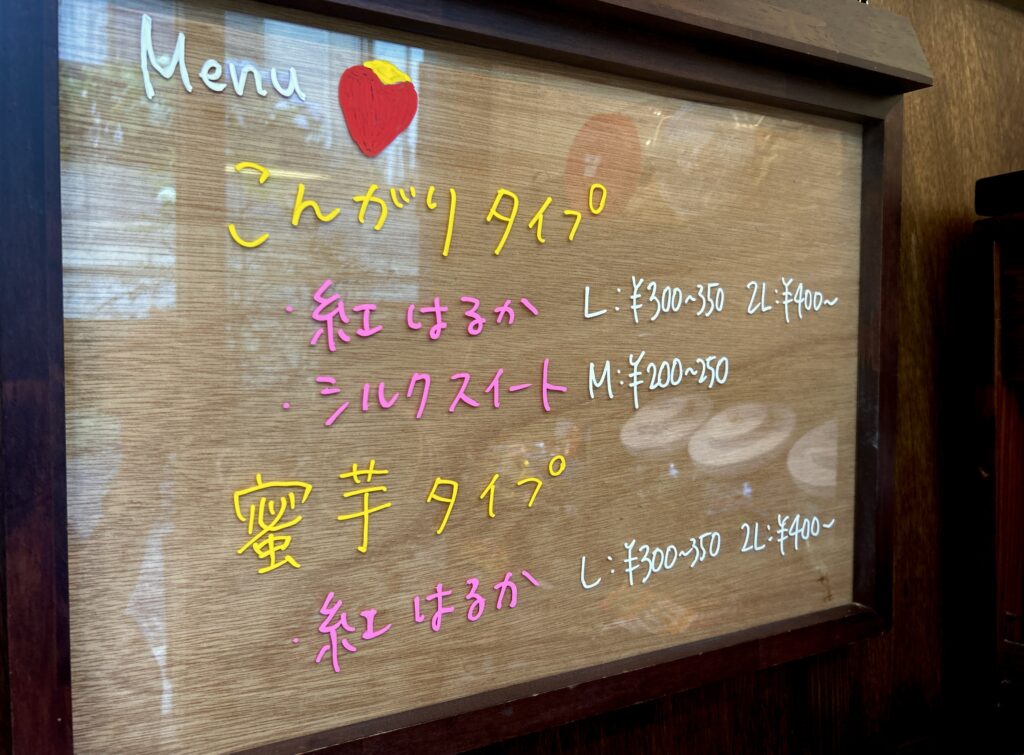 Menu
こんがりタイプ
・紅はるか L:¥300~350 2L:¥400~
・シルクスイート M:¥200~250
蜜芋タイプ
・紅はるか L:¥300~350 2L:¥400~